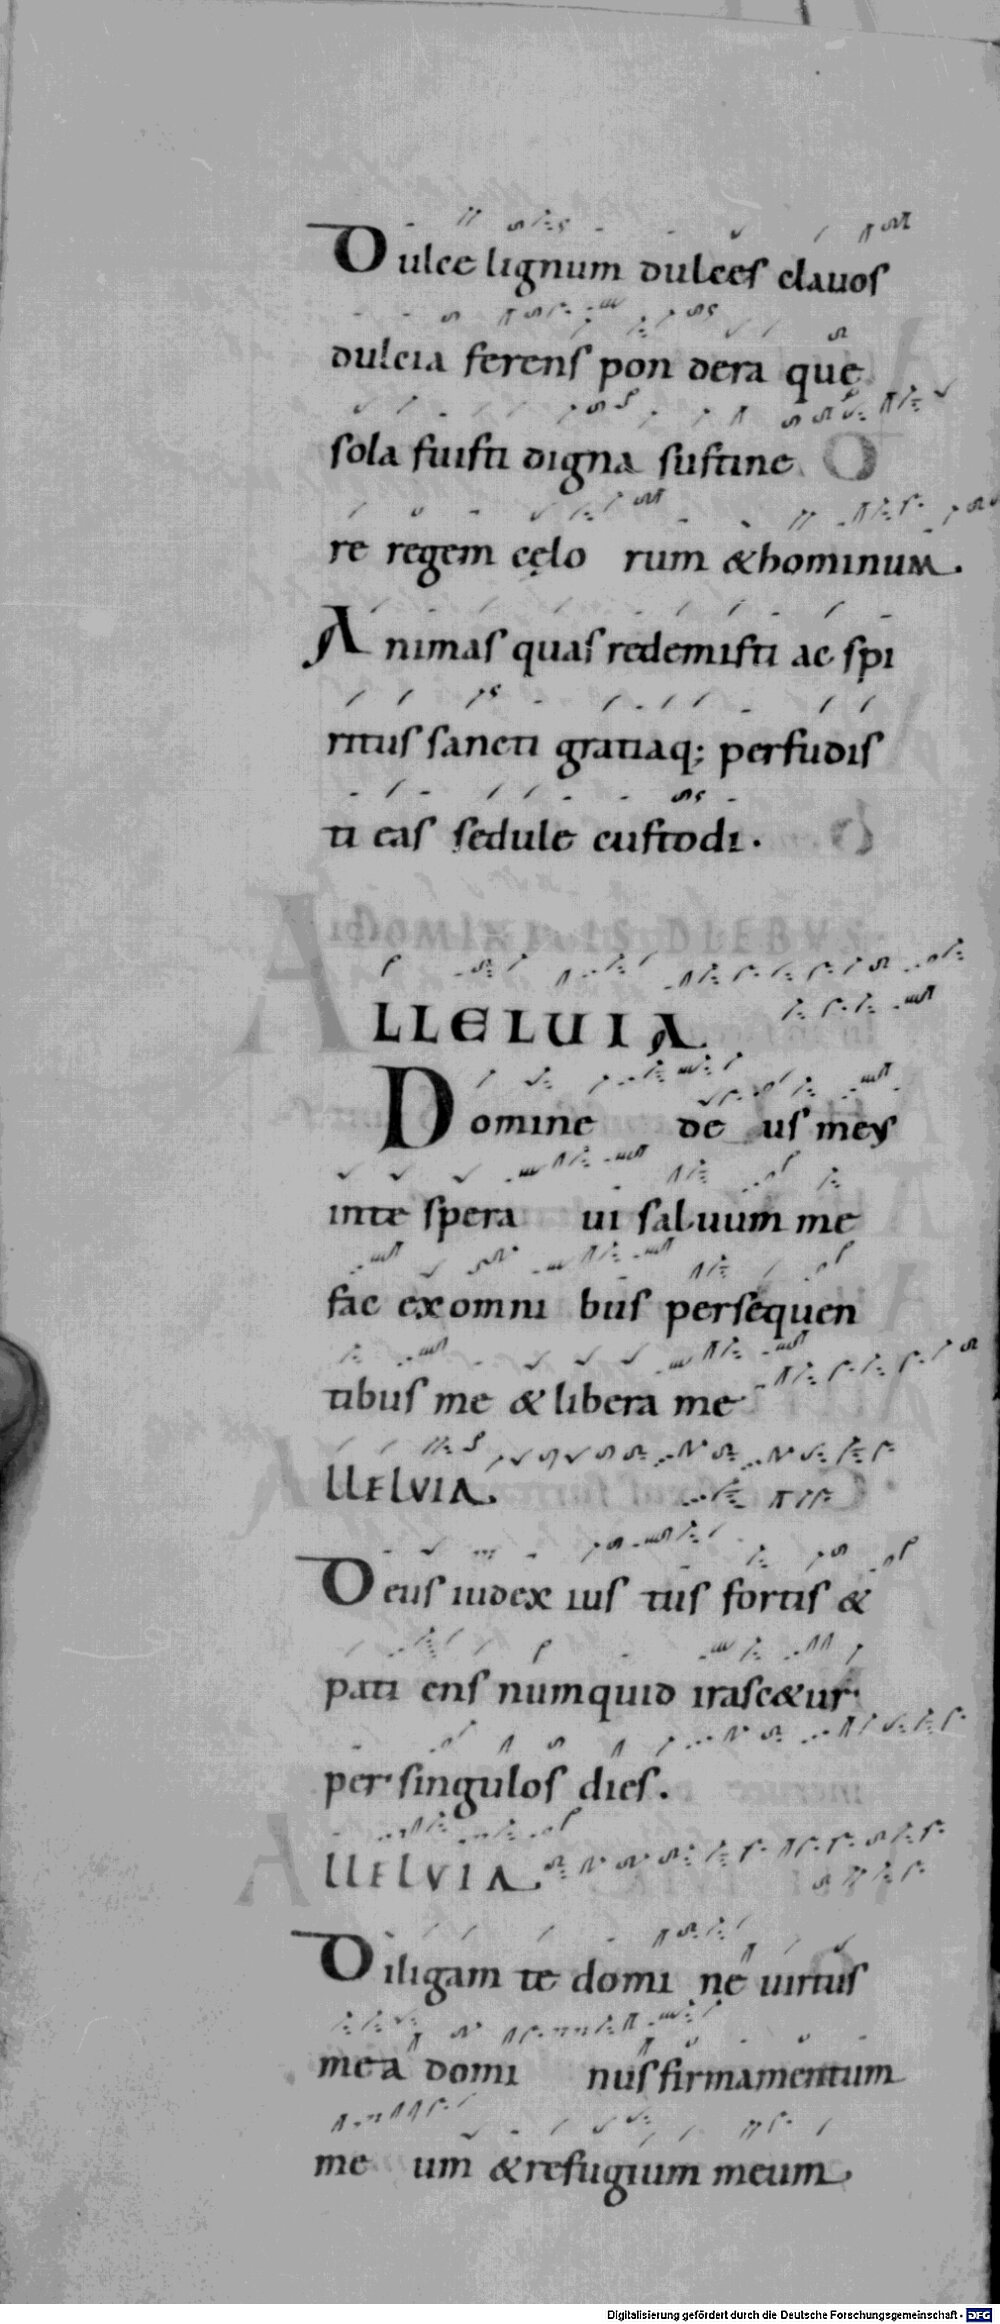 Dulce lignum dulces clauos
dulcia ferens pon dera que
sola fuisti digna sustine
re regem cęlo rum & hominum.
Animas quas redemisti ac spi
ritus sancti gratiaq; perfudis
ti eas sedule custodi.
LLELUIA
Domine de us meus
inte spera ui saluum me
fac ex omni bus persequen
tibus me & libera me
LLELVIA.
Deus iudex ius tus fortis &
pati ens numquid irasc&ur
per singulos dies.
LLELVIA.
Diligam te domi ne uirtus
mea domi nus firmamentum
me um & refugium meum.
Digitalisierung gefördert durch die Deutsche Forschungsgemeinschaft - DFG